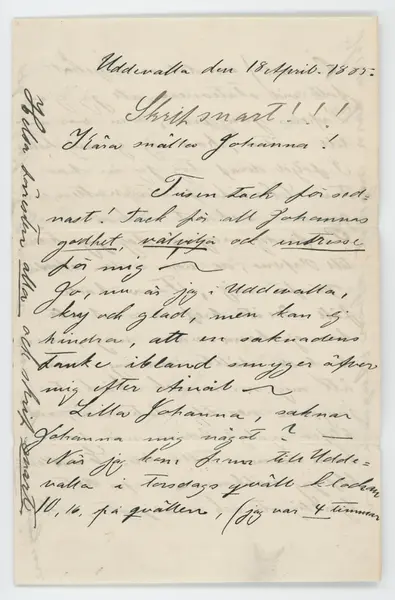 Uddevalla den 18 April. 1885.
Skrif snart!!!
Kära snälla Johanna!
Tusen tack för sed-
nast! Tack för all Johannas
godhet, välvilja och intresse
för mig
Jo, nu är jag i Uddevalla,
kry och glad, men kan ej
hindra, att en saknadens
tanke ibland smyger öfver
mig efter
Lilla Johanna, saknar
Johanna mig något? —
När jag kom fram till Udde-
valla i torsdags qväll klockan
10,16, på qvällen, (jag var 4 timmar
alla och skrif snart